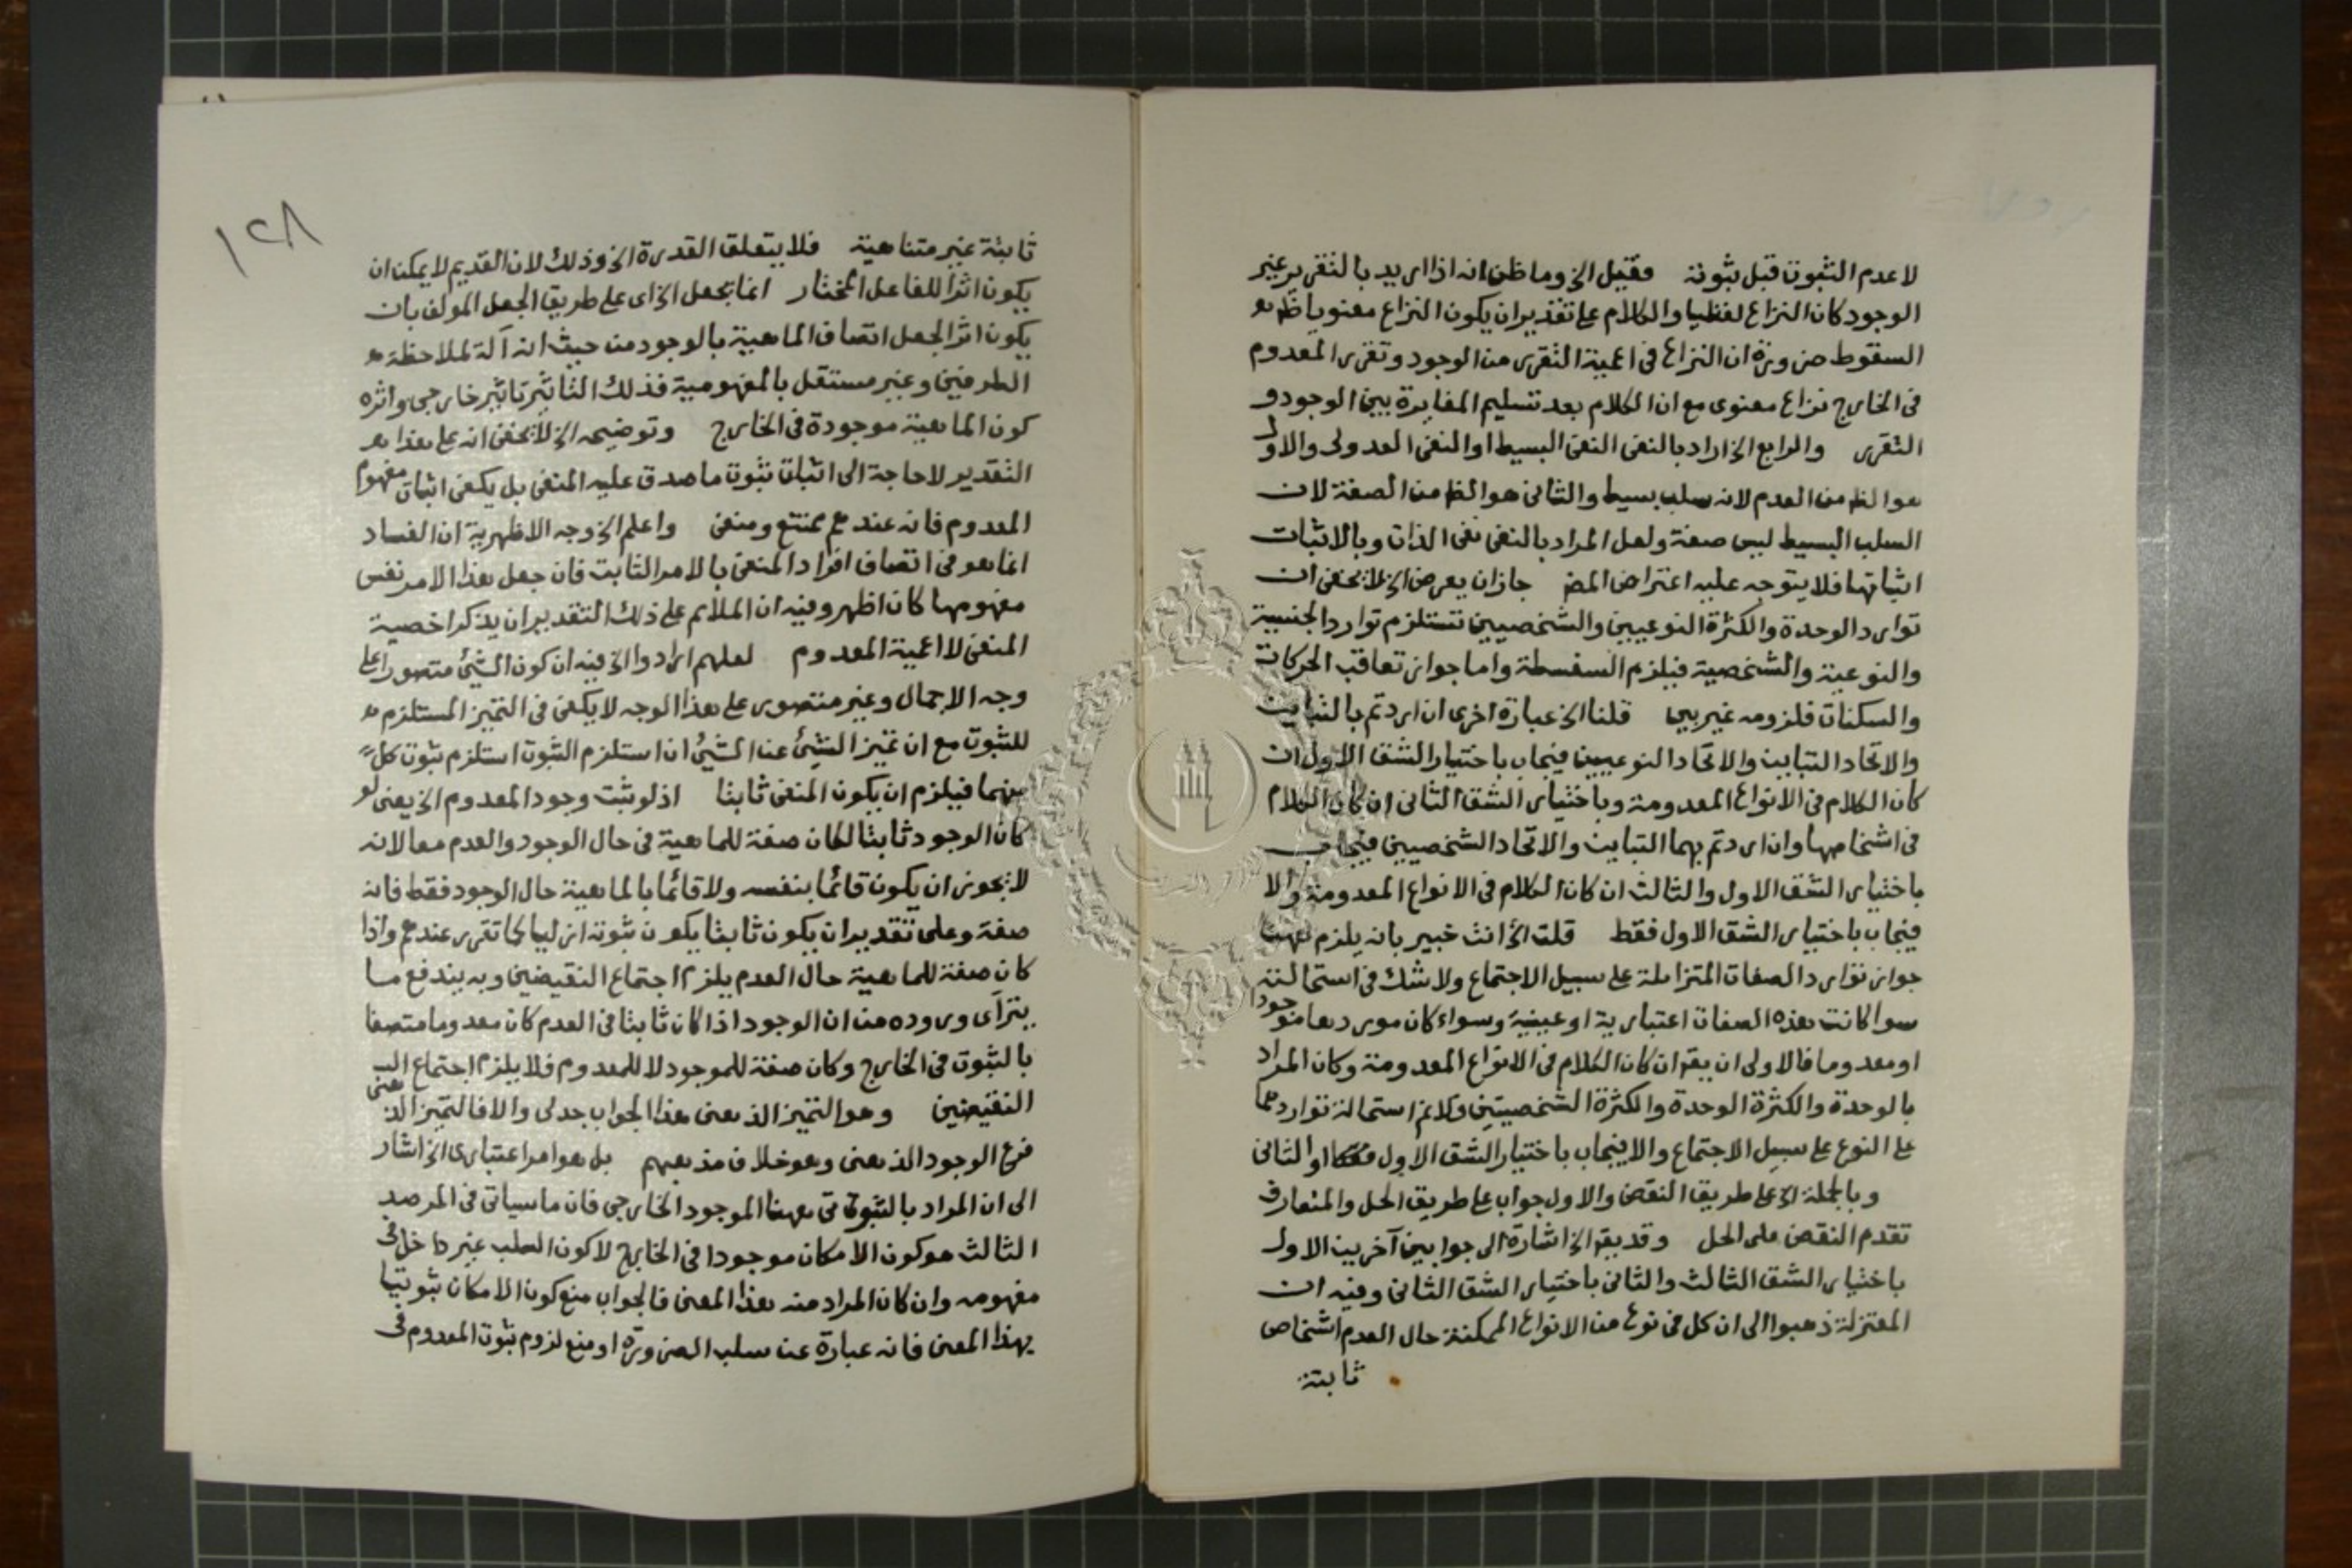 لا عدم الثبوت قبل ثبوته فقيل الخ وما ظن انه اذا اريد بالتقرير غير
الوجود كان النزاع لفظيا والكلام على تقدير ان يكون النزاع معنويا ظ
السقوط ضرورة ان النزاع فى اعمية التقرر من الوجود وتقرر المعدوم
فى الخارج نزاع معنوى مع ان الكلام بعد تسليم المغايرة بين الوجود و
التقرر والرابع الخ اراد بالنفى النفى البسيط او النفى العدولى والاول
هو الظ من العدم لانه سلب بسيط والثانى هو الظ من الصفة لان
السلب البسيط ليس صفة ولعل المراد بالنفى نفى الذات وبالاثبات
اثباتها فلا يتوجه عليه اعتراض المض جاز ان يعرض الخ لا يخفى ان
توارد الوحدة والكثرة النوعيين والشخصيين تستلزم توارد الجنسية
والنوعية والشخصية فيلزم السفسطة واما جواز تعاقب الحركات
والسكنات فلزومه غير بين قلنا الخ عبارة اخرى ان اردتم بالتباين
والاتحاد التباين والاتحاد النوعيين فيجاب باختيار الشق الاول ان
كان الكلام فى الانواع المعدومة وباختيار الشق الثانى ان كان الكلام
فى اشخاصها وان اردتم بهما التباين والاتحاد الشخصيين فيجاب
باختيار الشق الاول والثالث ان كان الكلام فى الانواع المعدومة والا
فيجاب باختيار الشق الاول فقط قلت الخ انت خبير بانه يلزم ههنا
جواز توارد الصفات المتزايلة على سبيل الاجتماع ولا شك فى استحالته
سوا كانت هذه الصفات اعتبارية او عينية وسواء كان موردها موجودا
او معدوما فالاولى ان يقه ان كان الكلام فى الانواع المعدومة وكان المراد
بالوحدة والكثرة الوحدة والكثرة الشخصيتين ولا نم استحالة تواردهما
على النوع على سبيل الاجتماع والا فيجاب باختيار الشق الاول او الثانى
وبالجملة الخ على طريق النقض والاول جواب على طريق الحل والمتعارف
تقدم النقض على الحل وقد يقه الخ اشارة الى جوابين آخرين الاول
باختيار الشق الثالث والثانى باختيار الشق الثانى وفيه ان
المعتزلة ذهبوا الى ان كل فى نوع من الانواع الممكنة حال العدم اشخاص
ثابتة
١٢٨
ثابتة غير متناهية فلا يتعلق القدرة الخ وذلك لان القديم لا يمكن ان
يكون اثرا للفاعل المختار انما يجعل الخ اى على طريق الجعل المولف بان
يكون اثر الجعل اتصاف الماهية بالوجود من حيث انه آلة لملاحظة
الطرفين وغير مستقل بالمفهومية فذلك التاثير تاثير خارجى واثره
كون الماهية موجودة فى الخارج وتوضيحه الخ لا يخفى انه على هذا
التقدير لا حاجة الى اثبات ثبوت ما صدق عليه المنفى بل يكفى اثبات مفهوم
المعدوم فانه عندهم ممتنع ومنفى واعلم الخ وجه الاظهرية ان الفساد
انما هو فى اتصاف افراد المنفى بالامر الثابت فان جعل هذا الامر نفس
مفهومها كان اظهر وفيه ان الملائم على ذلك التقدير ان يذكر اخصية
المنفى لا اعمية المعدوم لعلهم ارادوا الخ فيه ان كون الشئ متصورا على
وجه الاجمال وغير متصور على هذا الوجه لا يكفى فى التميز المستلزم
للثبوت مع ان تميز الشئ عن الشئ ان استلزم الثبوت استلزم ثبوت كل
منهما فيلزم ان يكون المنفى ثابتا اذ لو ثبت وجود المعدوم الخ يعنى لو
كان الوجود ثابتا لكان صفة للماهية فى حال الوجود والعدم معا لانه
لا يجوز ان يكون قائما بنفسه ولا قائما بالماهية حال الوجود فقط فانه
صفة وعلى تقدير ان يكون ثابتا يكون ثبوته ازليا كما تقرر عندهم واذا
كان صفة للماهية حال العدم يلزم اجتماع النقيضين وبه يندفع ما
يتراى وروده من ان الوجود اذا كان ثابتا فى العدم كان معدوما متصفا
بالثبوت فى الخارج وكان صفة للموجود لا للمعدوم فلا يلزم اجتماع
النقيضين وهو التميز الذهنى هذا الجواب جدلى والا فالتميز الذهنى
فرع الوجود الذهنى وهو خلاف مذهبهم بل هو امر اعتبارى الخ اشار
الى ان المراد بالثبوتى ههنا الموجود الخارجى فان ما سياتى فى المرصد
الثالث هو كون الامكان موجودا فى الخارج لا كون السلب غير داخل فى
مفهومه وان كان المراد منه هذا المعنى فالجواب منع كون الامكان ثبوتيا
بهذا المعنى فانه عبارة عن سلب الضرورة او منع لزوم ثبوت المعدوم فى